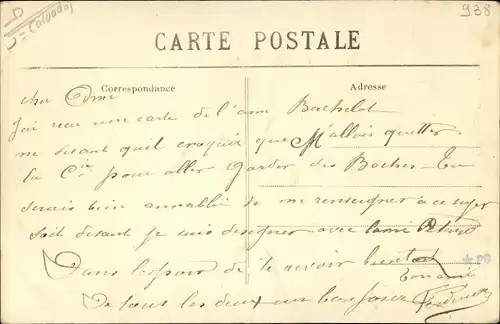 (Calvados)
938
CARTE POSTALE
Correspondance
Adresse
cher Ami
J'ai reçu une carte de l'ami Bachelot
me disant qu'il croyait que M'allais quitter
la Cie pour aller Garder des Boches Tu
serais bien de me renseigner à ce sujet
soit disant je suis désigner avec l'ami
Dans l'espoir de te revoir bientot
Ton ami
De tous les deux une